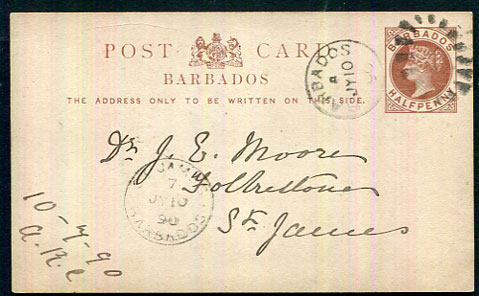 POST CARD
BARBADOS
THE ADDRESS ONLY TO BE WRITTEN ON THIS SIDE.
BARBADOS
HALFPENNY
BARBADOS
A
JY 10
90
Dr. J. E. Moore
Folkestone
St. James
JAMES
7
JY 10
90
BARBADOS
10-7-90